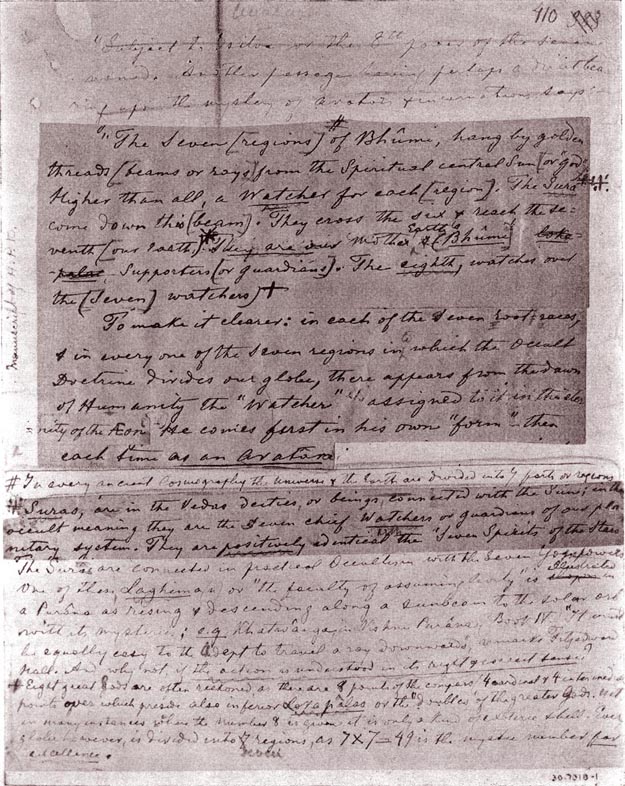 410
"Subject to or the 8th of the seven
Another passage having perhaps a
upon the mystery of Avatar & incarnations says
"The Seven [regions] # of Bhûmi, hang by golden
threads [beams or rays] from the Spiritual central Sun [or God]
Higher than all, a Watcher for each [region]. The Suras #
come down this [beam]. They cross the six & reach the se-
venth [our Earth] They are our Mother Earth's [Bhûmi]
Supporters [or guardians]. The eighth, watches over
the [Seven] watchers) +
To make it clearer: in each of the Seven root-races,
& in every one of the Seven regions in which the Occult
Doctrine divides our globe, there appears from the dawn
of Humanity the "Watcher" assigned to it in the eter-
nity of the Æon. He comes first in his own "form" then
each time as an Avatara.
# In every ancient Cosmography the Universe & the Earth are divided into 7 parts or regions
# Suras, are in the Vedas deities, or beings, connected with the Sun; in the
occult meaning they are the Seven chief Watchers or guardians of our pla-
netary system. They are positively identical the "Seven Spirits of the Stars
The Suras are connected in practical Occultism with the Seven Yogi powers
One of these, Laghima, or "the faculty of assuming levity" is illustrated in
a Purâna as rising & descending along a sunbeam to the solar orb
with its mysteries; e.g. Khatvânga, in Vishnu Purâna, Book IV. "It must
be equally easy to the Adept to travel a ray downwards", remarks Fitzedward
Hall. And why not, if the action is understood in its right sense?
Eight great Gods are often reckoned as there are 8 points of the compass 4 cardinal & 4
points over which preside also inferior Lokapalas or the "doubles" of the greater Gods. Yet
in many instances when the number 8 is given it is only a kind of exoteric shell. Every
globe however, is divided into 7 regions, as 7 x 7 = 49 is the mystic number par
excellence. seven
Manuscript of H.P.B.